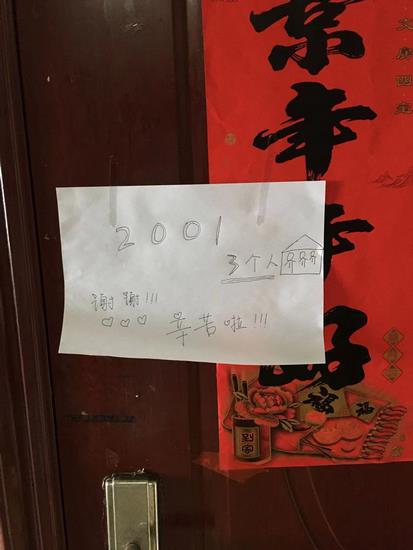 2001
3个人
谢谢!!!
♡♡♡ 辛苦啦!!!
好
福
到家